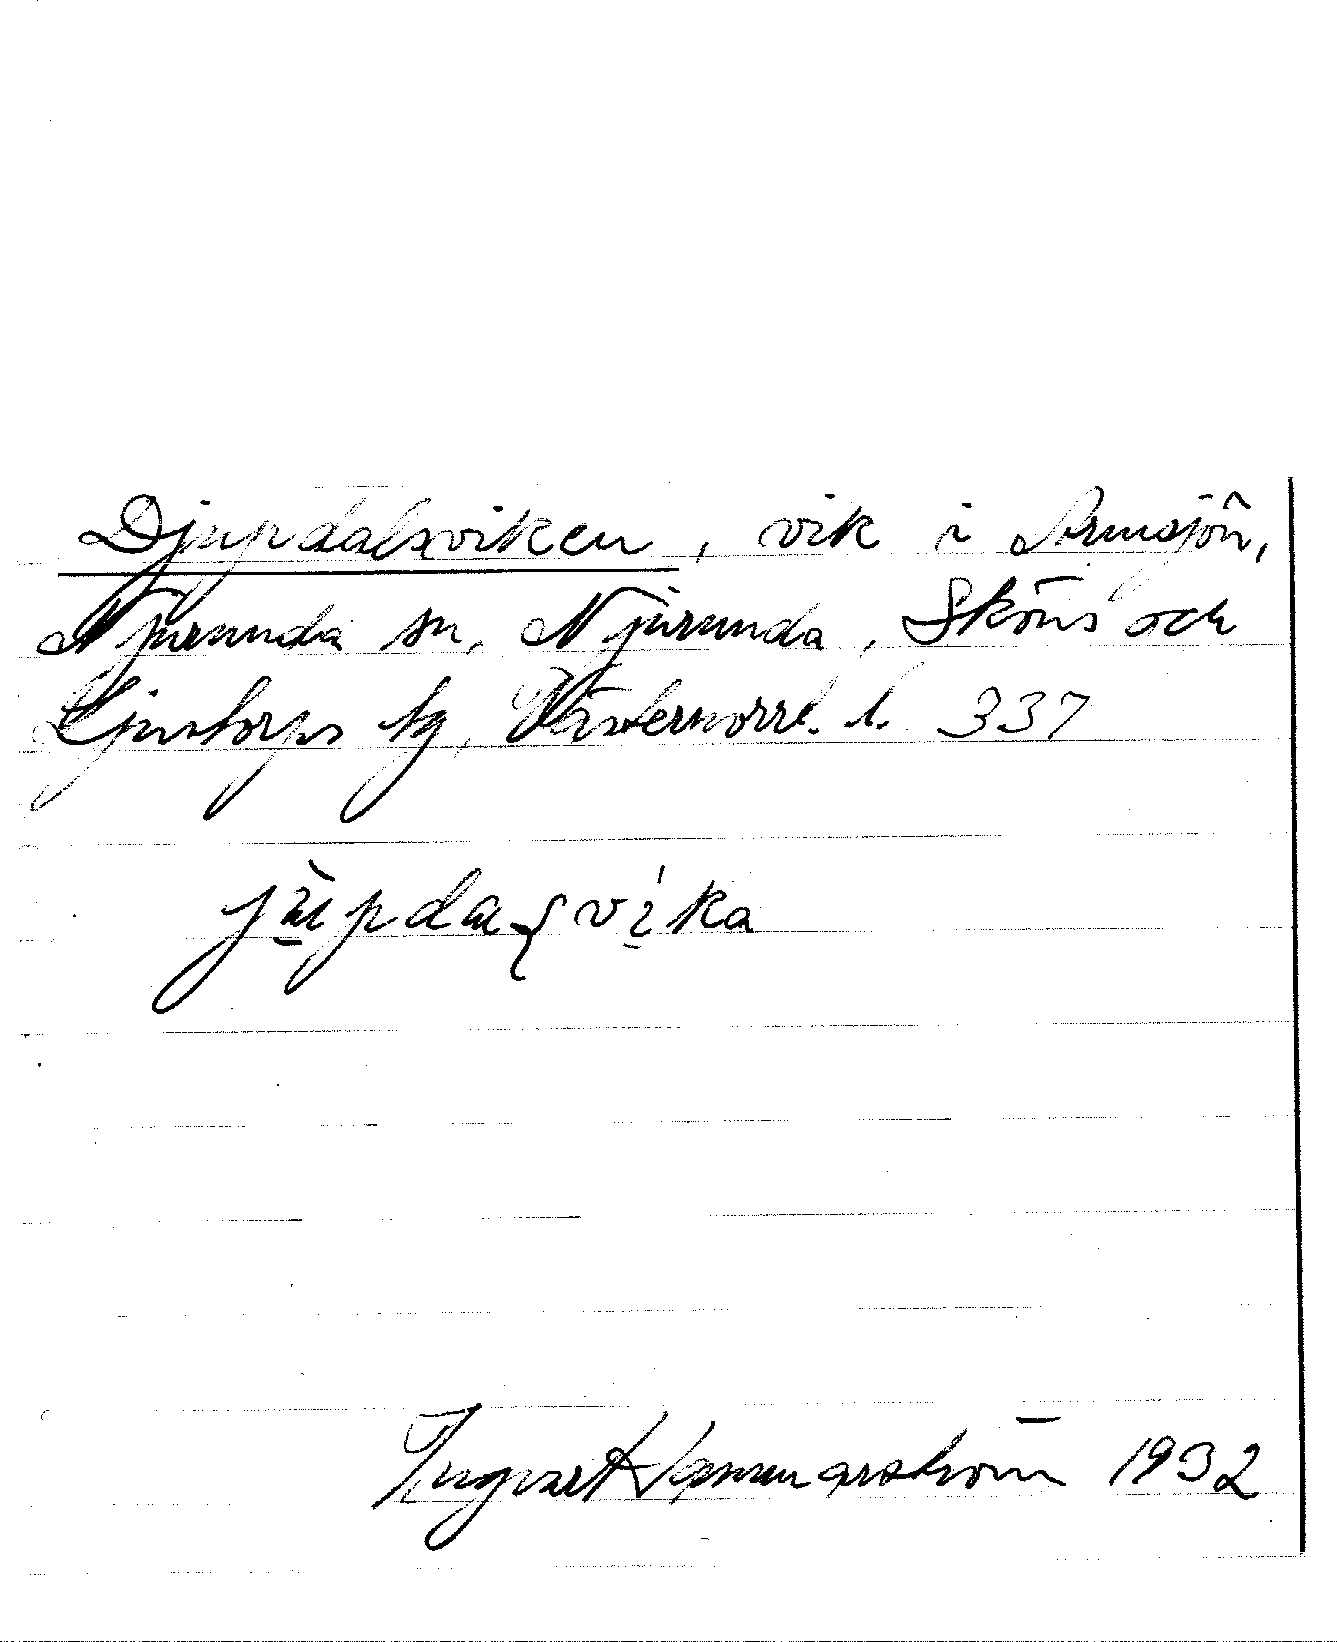 Djupdalsviken, vik i Armsjön,
Njurunda sn, Njurunda, Sköns och
Ljustorps tg, Västernorrl. l. 337
jup da vika
Ingvar Hammarström 1932